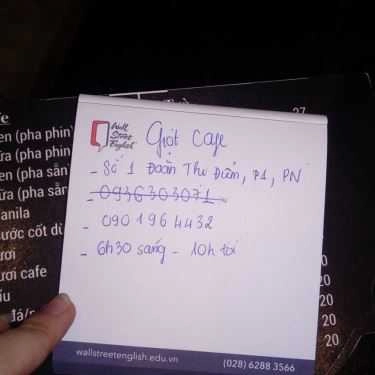 27
en (pha phin)
ữa (pha phin
en (pha sẵn
ữa (pha sẵn
anila
ước cốt dừ
ươi
ươi cafe
ấu
đá/n
Wall
Street
English
Giọt Cafe
- Số 1 Đoàn Thị Điểm, P1, PN
- 0936303071
- 0901964432
- 6h30 sáng - 10h tối
wallstreetenglish.edu.vn
(028) 6288 3566
20
20
20
20